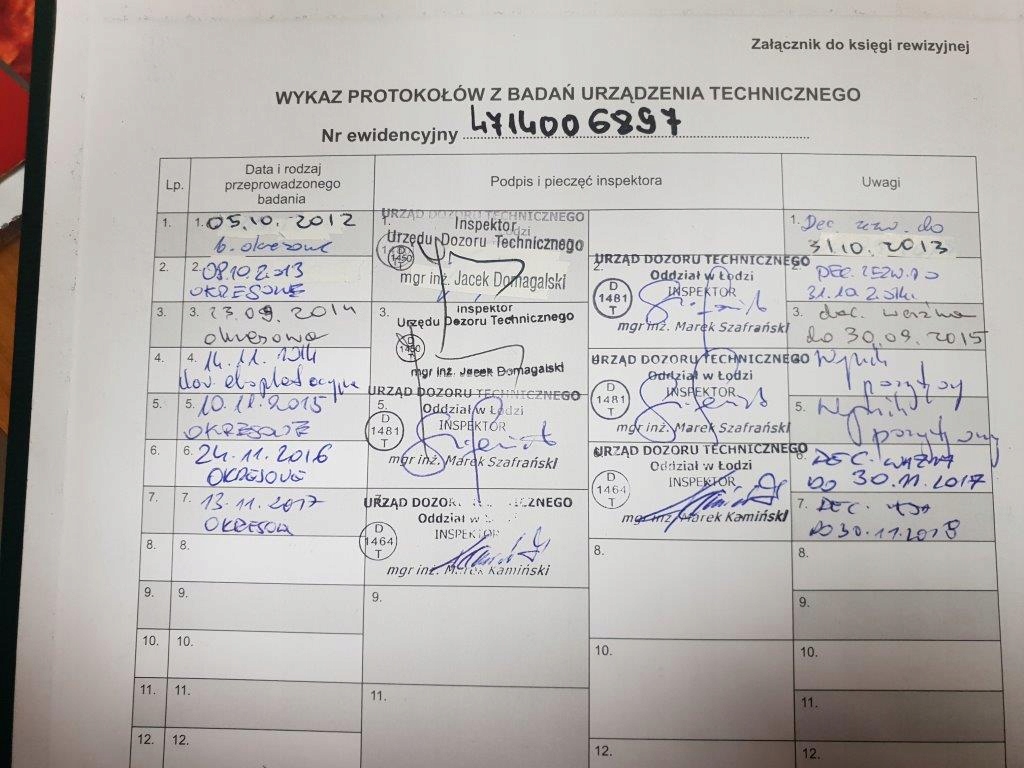 Załącznik do księgi rewizyjnej
WYKAZ PROTOKOŁÓW Z BADAŃ URZĄDZENIA TECHNICZNEGO
Nr ewidencyjny 4714006897
Lp.
Data i rodzaj
przeprowadzonego
badania
Podpis i pieczęć inspektora
Uwagi
1.
1. 05.10.2012
b. okresowe
URZĄD DOZORU TECHNICZNEGO
Inspektor
Urzędu Dozoru Technicznego
D
1450
mgr inż. Jacek Domagalski
1. Dec zezw. do
31.10.2013
2.
2. 08.10.2013
OKRESOWE
2.
URZĄD DOZORU TECHNICZNEGO
Oddział w Łodzi
INSPEKTOR
D
1481
T
mgr inż. Marek Szafrański
2. DEC. ZEZW. DO
3.
3. 23.09.2014
okresowa
3.
Inspektor
Urzędu Dozoru Technicznego
D
1450
mgr inż. Jacek Domagalski
3. dec. ważna
do 30.09.2015
4.
4. 14.11.2014
URZĄD DOZORU TECHNICZNEGO
Oddział w Łodzi
INSPEKTOR
D
1481
T
mgr inż. Marek Szafrański
Wynik
pozytywny
5.
5. 10.11.2015
OKRESOWE
URZĄD DOZORU TECHNICZNEGO
5.
Oddział w Łodzi
INSPEKTOR
D
1481
T
mgr inż. Marek Szafrański
5. Wynik
pozytywny
6.
6. 24.11.2016
OKRESOWE
URZĄD DOZORU TECHNICZNEGO
Oddział w Łodzi
INSPEKTOR
D
1464
T
mgr inż. Marek Kamiński
6. DEC. WAŻNA
DO 30.11.2017
7.
7. 13.11.2017
OKRESOWA
URZĄD DOZORU TECHNICZNEGO
Oddział w
INSPEKTOR
D
1464
T
mgr inż. Marek Kamiński
7. DEC.
DO 30.11.2018
8.
8.
8.
8.
9.
9.
9.
9.
10.
10.
10.
10.
11.
11.
11.
11.
12.
12.
12.
12.